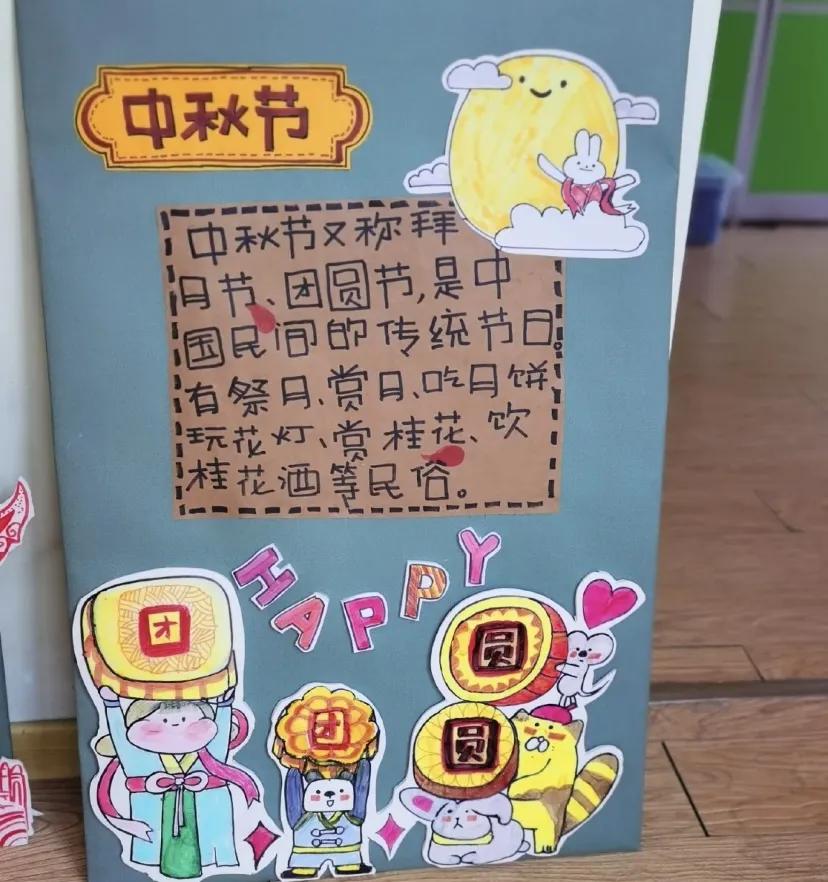 中秋节
中秋节又称拜
月节、团圆节,是中
国民间的传统节日。
有祭月、赏月、吃月饼
玩花灯、赏桂花、饮
桂花酒等民俗。
HAPPY
团
团
圆
圆